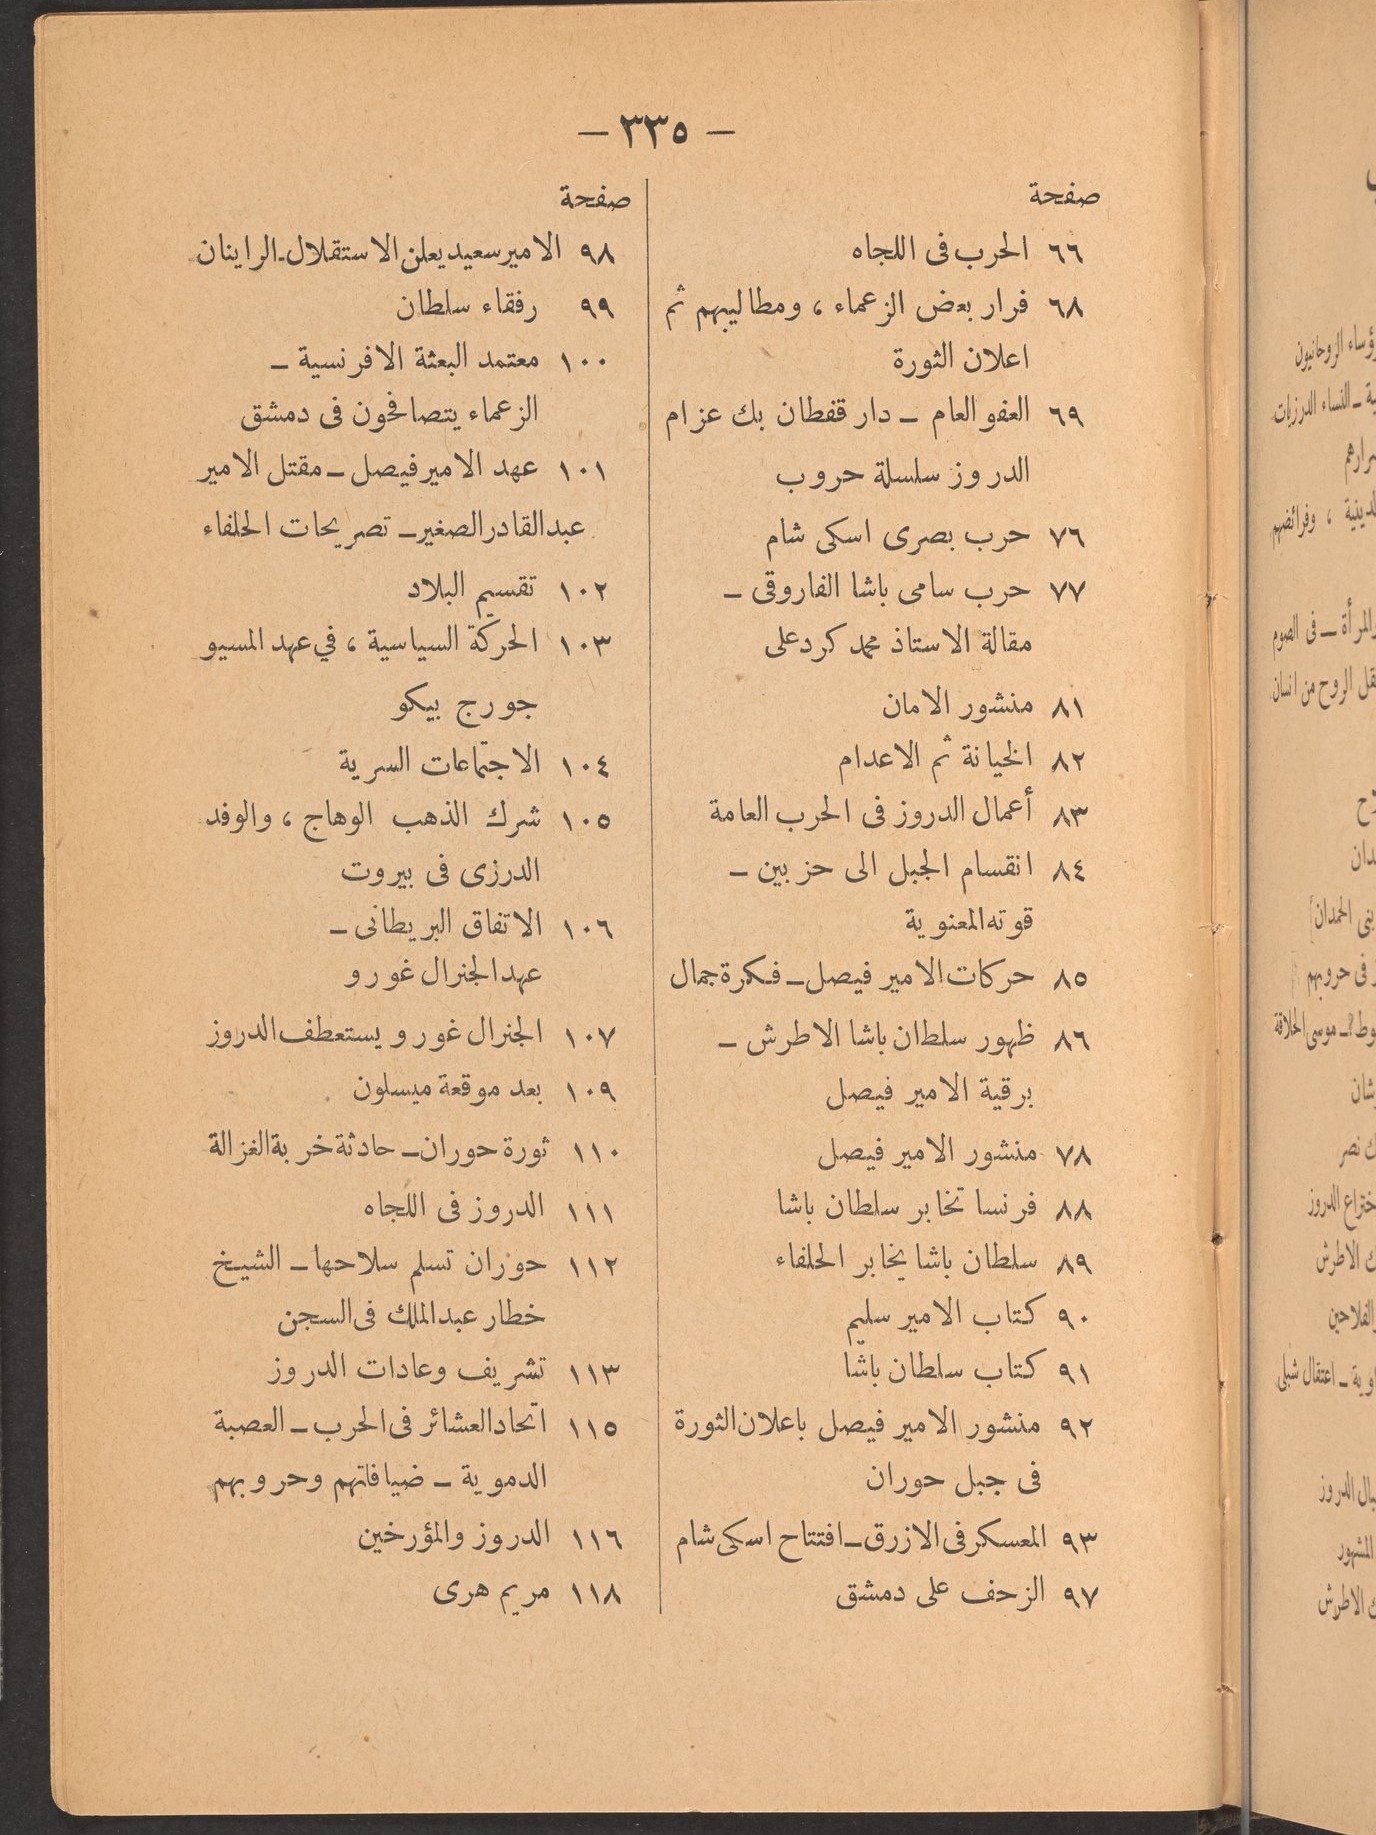 — ٣٣٥ —
صفحة
٦٦ الحرب فى اللجاه
٦٨ فرار بعض الزعماء ، ومطاليبهم ثم
اعلان الثورة
٦٩ العفو العام — دار قفطان بك عزام
الدروز سلسلة حروب
٧٦ حرب بصرى اسكى شام
٧٧ حرب سامى باشا الفاروقى —
مقالة الاستاذ محمد كرد على
٨١ منشور الامان
٨٢ الخيانة ثم الاعدام
٨٣ أعمال الدروز فى الحرب العامة
٨٤ انقسام الجبل الى حزبين —
قوته المعنوية
٨٥ حركات الامير فيصل — فكرة جمال
٨٦ ظهور سلطان باشا الاطرش —
برقية الامير فيصل
٧٨ منشور الامير فيصل
٨٨ فرنسا تخابر سلطان باشا
٨٩ سلطان باشا يخابر الحلفاء
٩٠ كتاب الامير سليم
٩١ كتاب سلطان باشا
٩٢ منشور الامير فيصل باعلان الثورة
فى جبل حوران
٩٣ المعسكر فى الازرق — افتتاح اسكى شام
٩٧ الزحف على دمشق
صفحة
٩٨ الامير سعيد يعلن الاستقلال — الراينان
٩٩ رفقاء سلطان
١٠٠ معتمد البعثة الافرنسية —
الزعماء يتصافحون فى دمشق
١٠١ عهد الامير فيصل — مقتل الامير
عبد القادر الصغير — تصريحات الحلفاء
١٠٢ تقسيم البلاد
١٠٣ الحركة السياسية ، في عهد المسيو
جورج بيكو
١٠٤ الاجتماعات السرية
١٠٥ شرك الذهب الوهاج ، والوفد
الدرزى فى بيروت
١٠٦ الاتفاق البريطانى —
عهد الجنرال غورو
١٠٧ الجنرال غورو يستعطف الدروز
١٠٩ بعد موقعة ميسلون
١١٠ ثورة حوران — حادثة خربة الغزالة
١١١ الدروز فى اللجاه
١١٢ حوران تسلم سلاحها — الشيخ
خطار عبد الملك فى السجن
١١٣ تشريف وعادات الدروز
١١٥ اتحاد العشائر فى الحرب — العصبة
الدموية — ضيافاتهم وحروبهم
١١٦ الدروز والمؤرخين
١١٨ مريم هرى
ؤساء الروحانيون
ية — النساء الدرزيات
سرارهم
دينية ، وفرائضهم
المرأة — فى الصوم
قل الروح من انسان
بنى الحمدان
فى حروبهم
وط؟ — موسى الحلاقة
ك نصر
ختراع الدروز
ك الاطرش
الفلاحين
وية — اعتقال شبلى
بال الدروز
المشهور
ك الاطرش